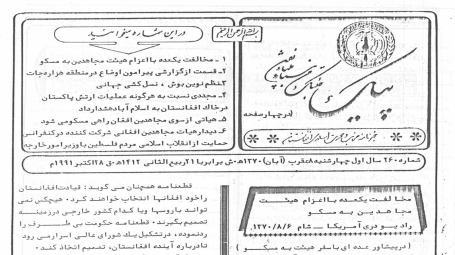 در این شماره میخوانید
۱ - مخالفت یکعده با اعزام هیئت مجاهدین به مسکو
۲- قسمت ازگزارشی پیرامون اوضاع درمنطقه هزاره‌جات
۳- نظم نوین بوش ، نسل کشی جهانی
۴- مجددی نسبت به هرگونه عملیات ارتش پاکستان
درخاک افغانستان به اسلام آبادهشدارداد
۵- هیاتی ازسوی مجاهدین افغان راهی مسکومی شود
۶- دیدارهیات مجاهدین افغانی شرکت کننده درکنفرانس
حمایت ازانقلاب اسلامی مردم فلسطین باوزیرامورخارجه
(درچهارصفحه)
شماره ۲۶۰ سال اول چهارشنبه ۸عقرب (آبان) ۱۳۷۰ ه.ش برابر با ۲۱ ربیع الثانی ۱۴۱۲ه.ق ۲۸اکتبر ۱۹۹۱م
مخالفت یکعده با اعزام هیئت
مجاهدین به مسکو
رادیوی آمریکا ــ شام ۱۳۷۰/۸/۶
( درپیشاور عده ای باسفر هیئت به مسکو )
قطعنامه همچنان می گوید : قیادت افغانستان
راخود افغانها انتخاب خواهند کرد ٠ هیچکس نمی
تواند باروسها ویا کدام کشور خارجی درزمینه
تصمیم بگیرند ٠ قطعنامه حکومت بی طرف را
ردنموده ، درتشکیل یک شورای عالی اسرارمی رود
تادرباره آینده افغانستان، تصمیم اتخاذ کند ٠